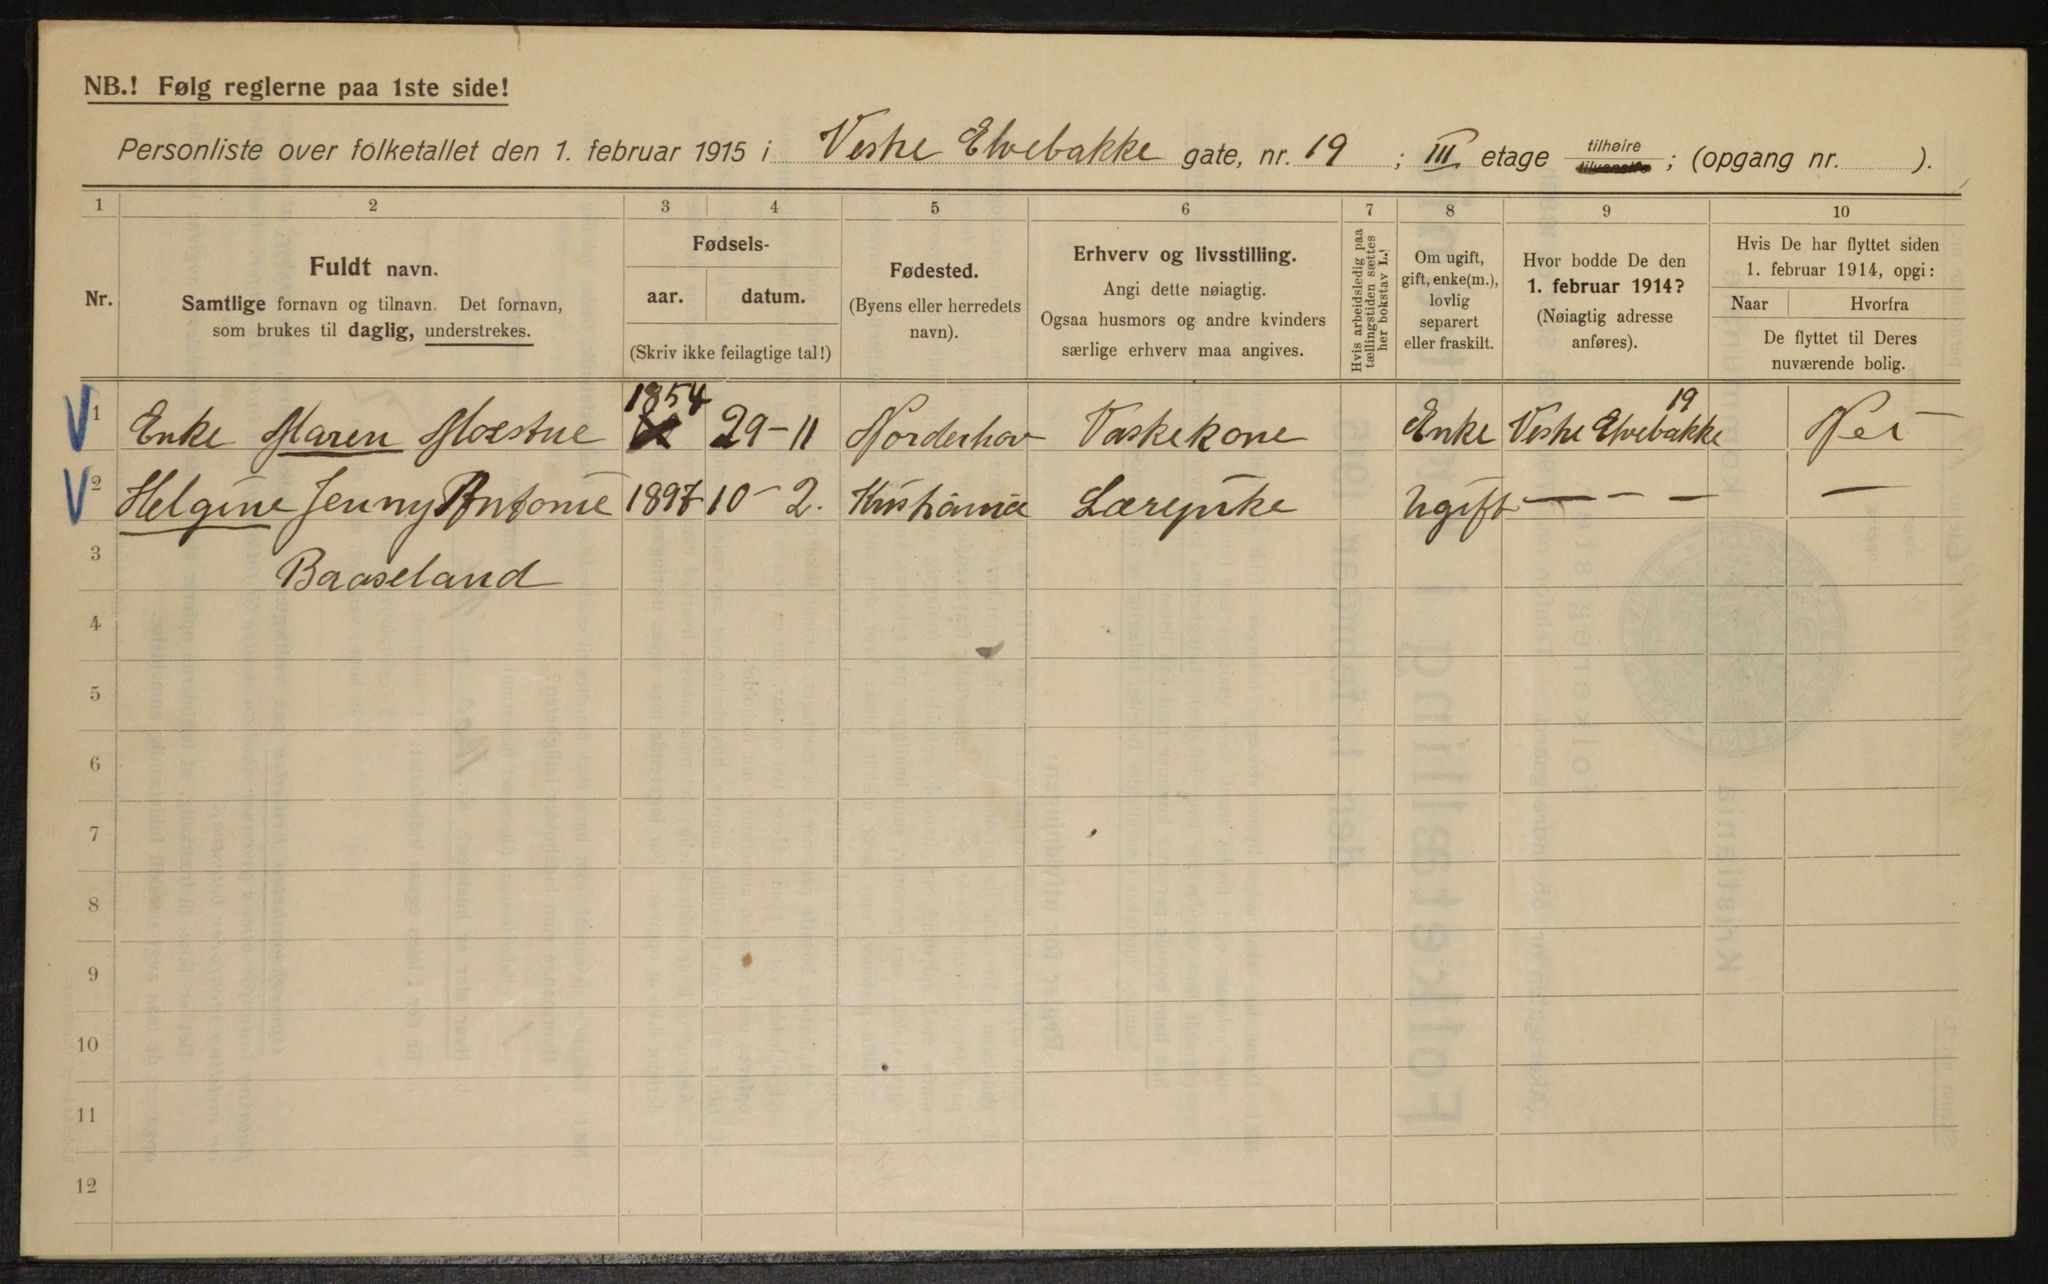 NB.! Følg reglerne paa 1ste side!
Personliste over folketallet den 1. februar 1915 i Vestre Elvebakke gate, nr. 19 ; III etage tilhøire tilvenstre ; (opgang nr. ).
1 2 3 4 5 6 7 8 9 10
Nr.
Fuldt navn.
Samtlige fornavn og tilnavn. Det fornavn,
som brukes til daglig, understrekes.
Fødsels-
aar. datum.
(Skriv ikke feilagtige tal!)
Fødested.
(Byens eller herredets
navn).
Erhverv og livsstilling.
Angi dette nøiagtig.
Ogsaa husmors og andre kvinders
særlige erhverv maa angives.
Hvis arbeidsledig paa
tællingstiden sættes
her bokstav L.!
Om ugift,
gift, enke(m.),
lovlig
separert
eller fraskilt.
Hvor bodde De den
1. februar 1914?
(Nøiagtig adresse
anføres).
Hvis De har flyttet siden
1. februar 1914, opgi:
Naar Hvorfra
De flyttet til Deres
nuværende bolig.
V 1 Enke Maren Moestue 1854 29-11 Norderhov Vaskekone Enke Vestre Elvebakke 19 Nei
V 2 Helgine Jenny Antonie 1897 10-2. Kristiania Ugift — — — —
3 Baaseland
4
5
6
7
8
9
10
11
12